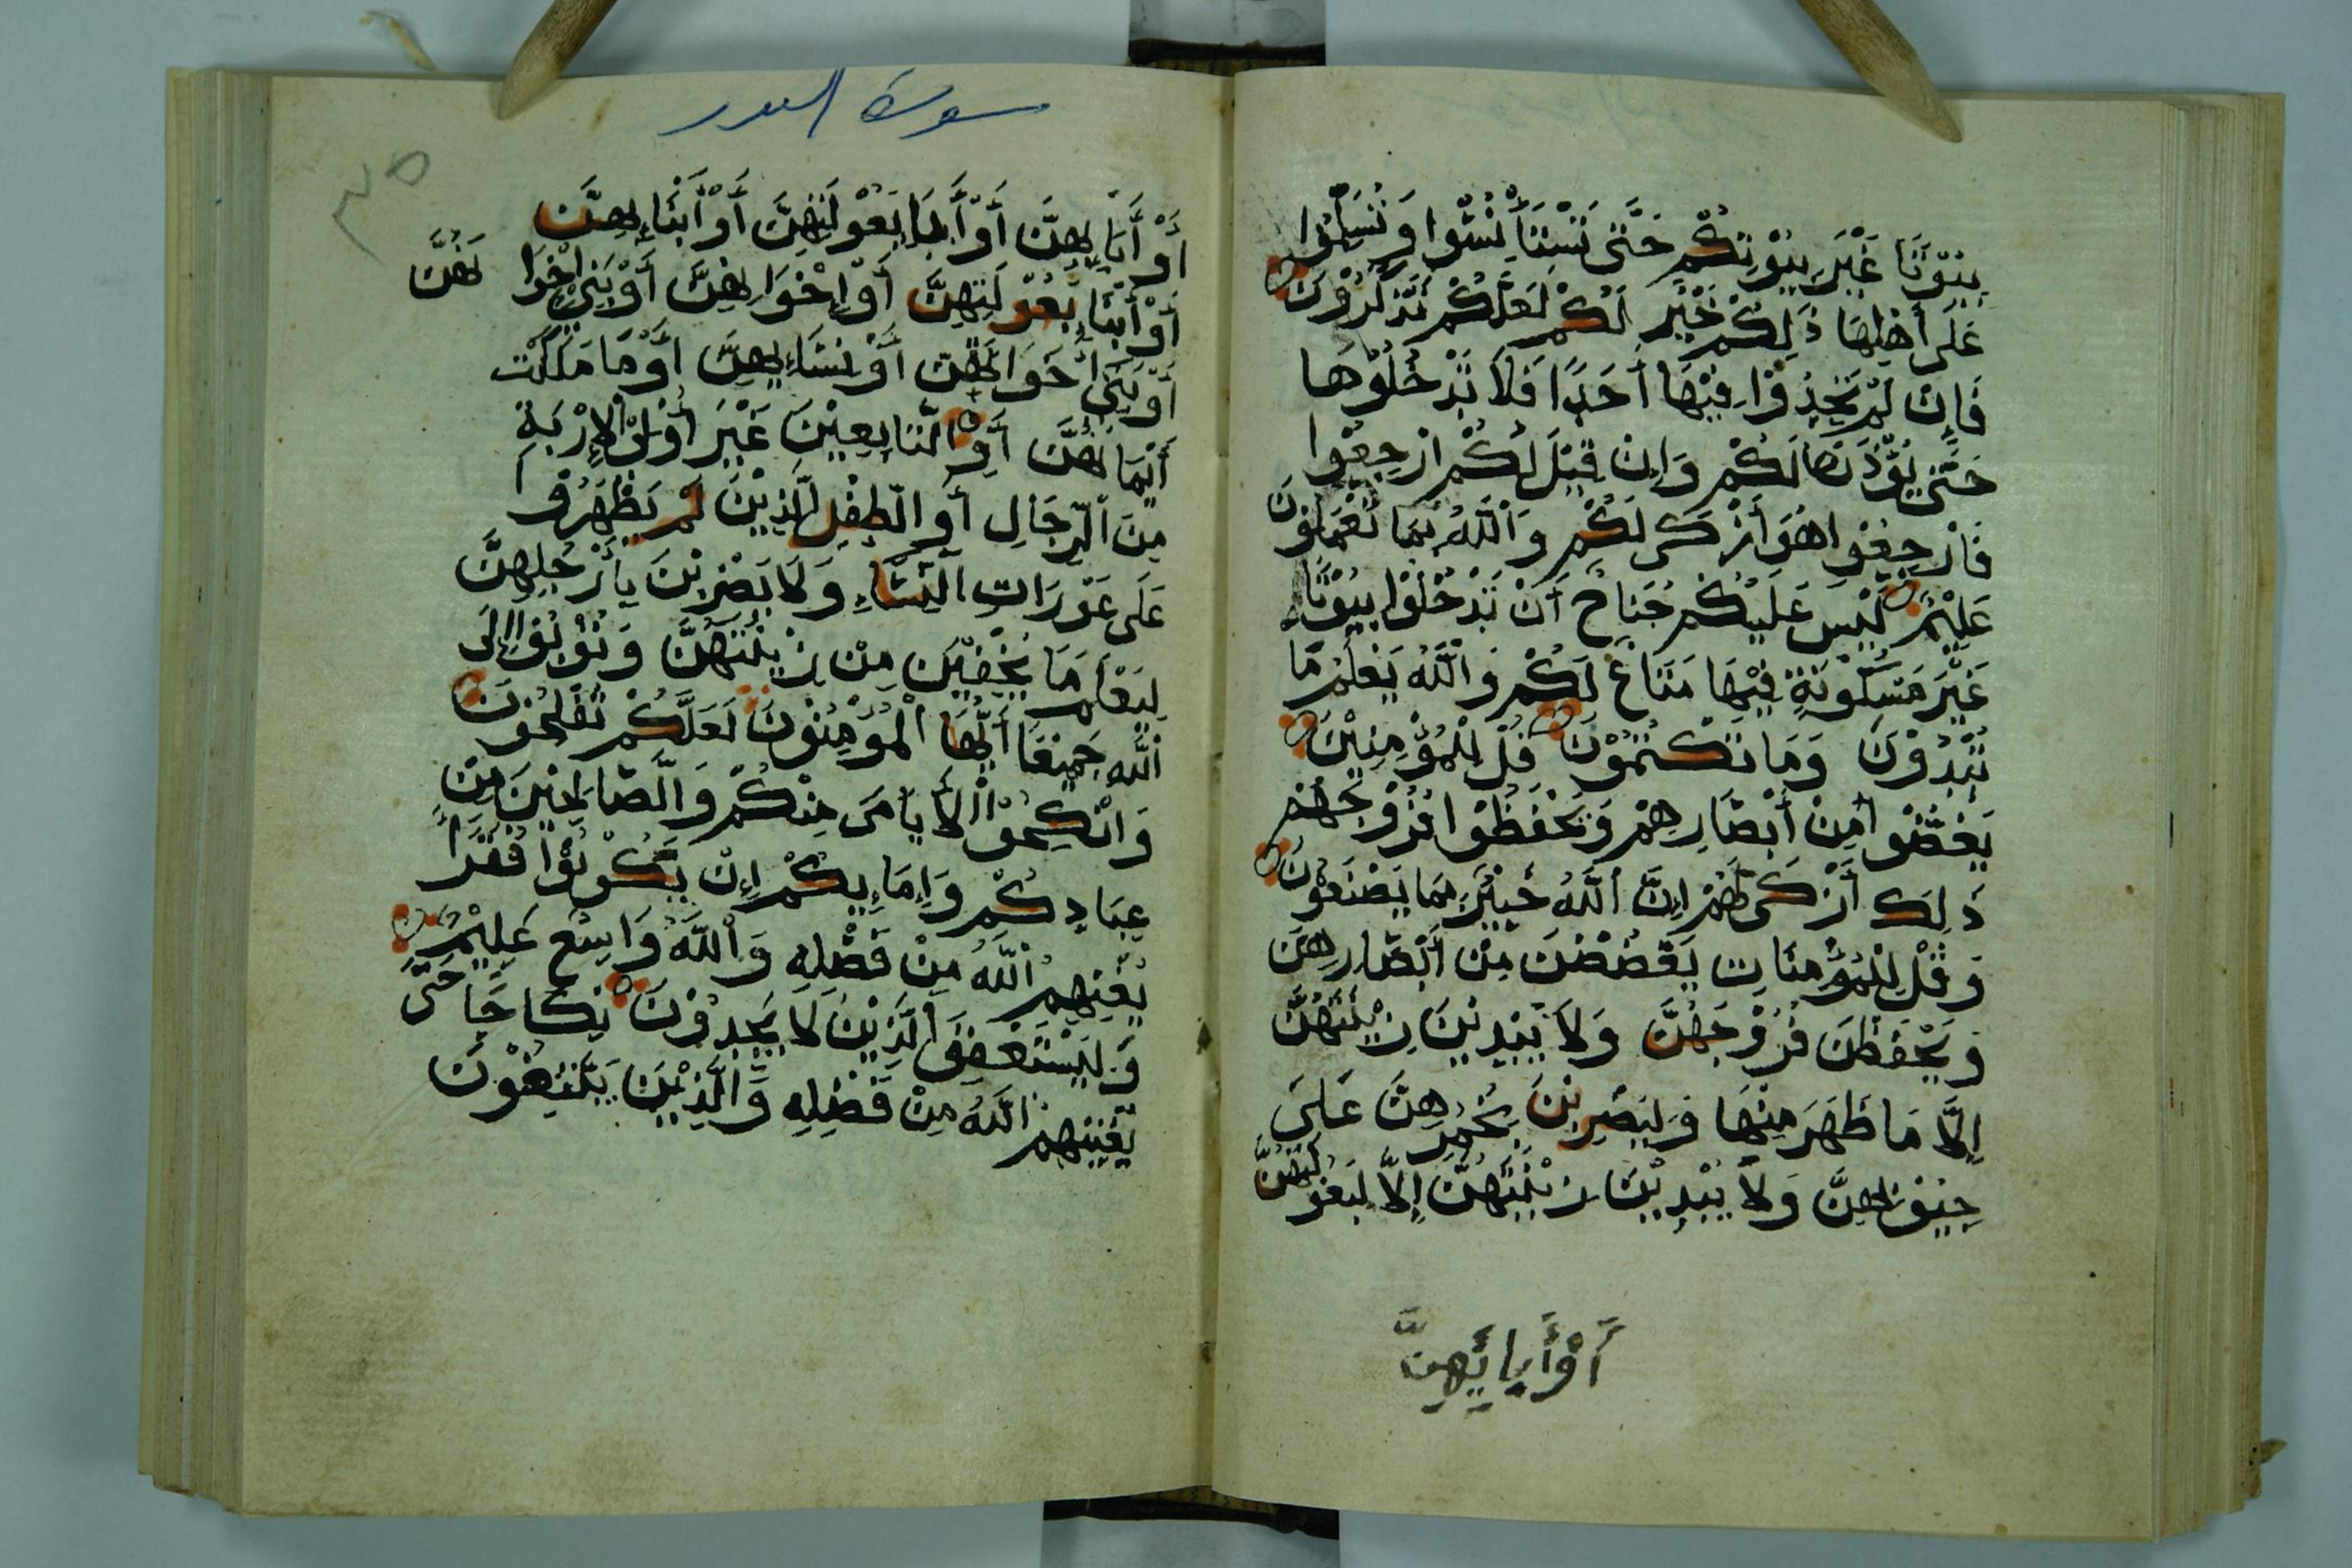 بيُوْتًا غَيْرَ بيُوْتِكُمْ حَتَّى تَسْتَأْنِسُوا وَتُسَلِّمُوا
عَلَى أَهْلِهَا ذَلِكُمْ خَيْرٌ لَكُمْ لَعَلَّكُمْ تَذَكَّرُوْنَ
فَإِنْ لَمْ تَجِدُوْا فِيْهَا أَحَدًا فَلَا تَدْخُلُوْهَا
حَتَّى يُؤْذَنَ لَكُمْ وَإِنْ قِيْلَ لَكُمْ ارْجِعُوْا
فَارْجِعُوْا هُوَ أَزْكَى لَكُمْ وَاللَّهُ بِمَا تَعْمَلُوْنَ
عَلِيْمٌ لَيْسَ عَلَيْكُمْ جُنَاحٌ أَنْ تَدْخُلُوْا بيُوْتًا
غَيْرَ مَسْكُوْنَةٍ فِيْهَا مَتَاعٌ لَكُمْ وَاللَّهُ يَعْلَمُ مَا
تُبْدُوْنَ وَمَا تَكْتُمُوْنَ قُلْ لِلْمُؤْمِنِيْنَ
يَغُضُّوا مِنْ أَبْصَارِهِمْ وَيَحْفَظُوْا فُرُوْجَهُمْ
ذَلِكَ أَزْكَى لَهُمْ إِنَّ اللَّهَ خَبِيْرٌ بِمَا يَصْنَعُوْنَ
وَقُلْ لِلْمُؤْمِنَاتِ يَغْضُضْنَ مِنْ أَبْصَارِهِنَّ
وَيَحْفَظْنَ فُرُوْجَهُنَّ وَلَا يُبْدِيْنَ زِيْنَتَهُنَّ
إِلَّا مَا ظَهَرَ مِنْهَا وَلْيَضْرِبْنَ بِخُمُرِهِنَّ عَلَى
جِيُوْبِهِنَّ وَلَا يُبْدِيْنَ زِيْنَتَهُنَّ إِلَّا لِبُعُوْلَتِهِنَّ
أَوْ أَبَائِهِنَّ
سورة النور
٣٥
أَوْ أَبَائِهِنَّ أَوْ أَبَاءِ بُعُوْلَتِهِنَّ أَوْ أَبْنَائِهِنَّ
أَوْ أَبْنَاءِ بُعُوْلَتِهِنَّ أَوْ إِخْوَانِهِنَّ أَوْ بَنِيْ إِخْوَانِهِنَّ
أَوْ بَنِيْ أَخَوَاتِهِنَّ أَوْ نِسَائِهِنَّ أَوْ مَا مَلَكَتْ
أَيْمَانُهُنَّ أَوِ التَّابِعِيْنَ غَيْرَ أُوْلِي الْإِرْبَةِ
مِنَ الرِّجَالِ أَوِ الطِّفْلِ الَّذِيْنَ لَمْ يَظْهَرُوْ
عَلَى عَوْرَاتِ النِّسَاءِ وَلَا يَضْرِبْنَ بِأَرْجُلِهِنَّ
لِيُعْلَمَ مَا يُخْفِيْنَ مِنْ زِيْنَتِهِنَّ وَتُوْبُوْا إِلَى
اللَّهِ جَمِيْعًا أَيُّهَا الْمُؤْمِنُوْنَ لَعَلَّكُمْ تُفْلِحُوْنَ
وَانْكِحُوْا الْأَيَامَى مِنْكُمْ وَالصَّالِحِيْنَ مِنْ
عِبَادِكُمْ وَإِمَائِكُمْ إِنْ يَكُوْنُوْا فُقَرَاءَ
يُغْنِهِمُ اللَّهُ مِنْ فَضْلِهِ وَاللَّهُ وَاسِعٌ عَلِيْمٌ
وَلْيَسْتَعْفِفِ الَّذِيْنَ لَا يَجِدُوْنَ نِكَاحًا حَتَّى
يُغْنِيَهُمُ اللَّهُ مِنْ فَضْلِهِ وَالَّذِيْنَ يَبْتَغُوْنَ